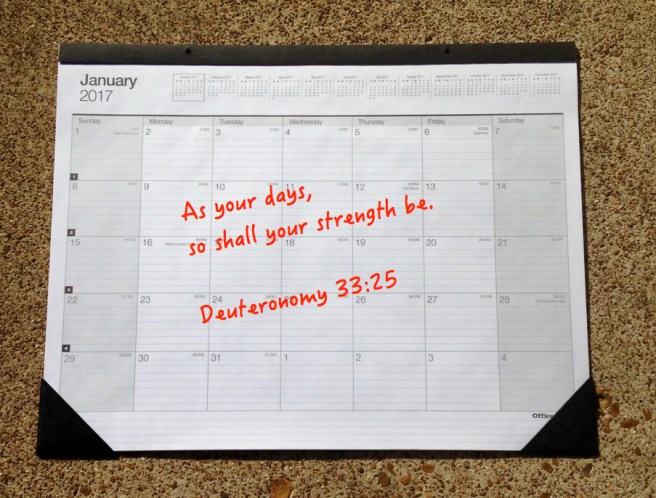 January
2017
Sunday Monday Tuesday Wednesday Thursday Friday Saturday
1 2 3 4 5 6 7
8 9 10 11 12 13 14
As your days,
so shall your strength be.
15 16 18 19 20 21
Deuteronomy 33:25
22 23 24 26 27 28
29 30 31 1 2 3 4
Office